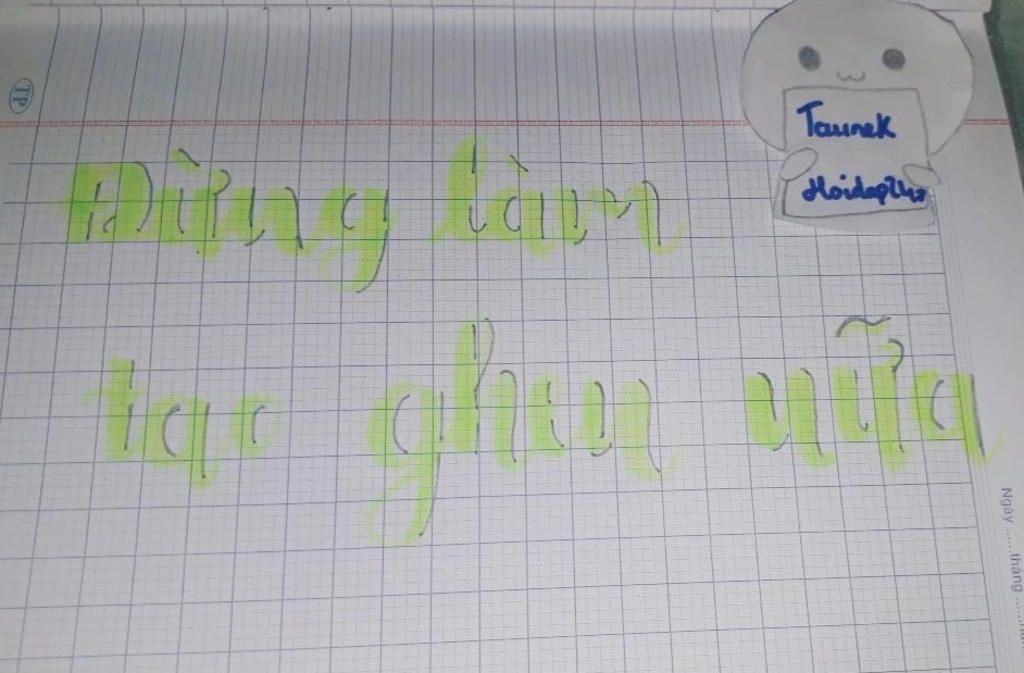 Taurek
Hoidap247
Đừng làm
tạo ghim nữa
TP
Ngày ........ tháng ........